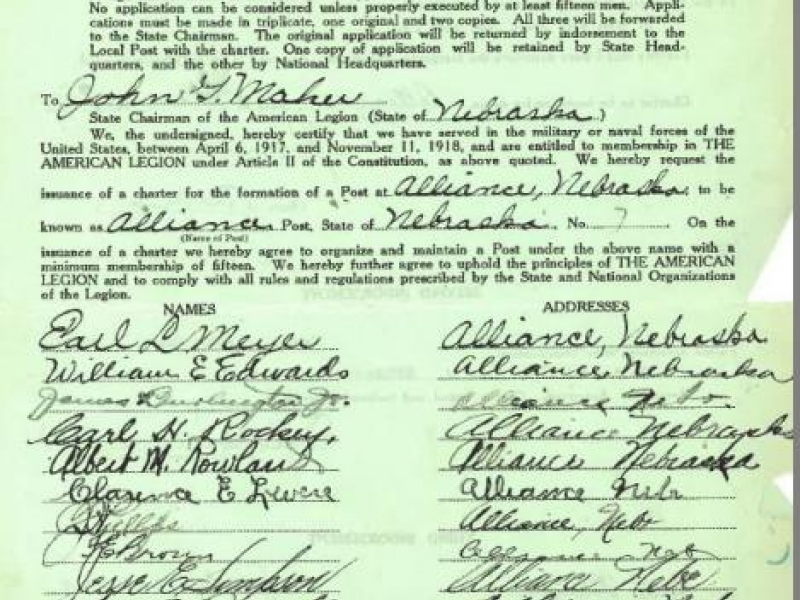 No application can be considered unless properly executed by at least fifteen men. Appli-
cations must be made in triplicate, one original and two copies. All three will be forwarded
to the State Chairman. The original application will be returned by indorsement to the
Local Post with the charter. One copy of application will be retained by State Head-
quarters, and the other by National Headquarters.
To John G. Maher
State Chairman of the American Legion (State of Nebraska)
We, the undersigned, hereby certify that we have served in the military or naval forces of the
United States, between April 6, 1917, and November 11, 1918, and are entitled to membership in THE
AMERICAN LEGION under Article II of the Constitution, as above quoted. We hereby request the
issuance of a charter for the formation of a Post at Alliance, Nebraska, to be
known as Alliance Post, State of Nebraska, No. 7 On the
(Name of Post)
issuance of a charter we hereby agree to organize and maintain a Post under the above name with a
minimum membership of fifteen. We hereby further agree to uphold the principles of THE AMERICAN
LEGION and to comply with all rules and regulations prescribed by the State and National Organizations
of the Legion.
NAMES ADDRESSES
Earl L Meyer Alliance, Nebraska
William E Edwards Alliance, Nebraska
James Jr. Alliance Nebr.
Carl H. Rockey, Alliance Nebraska
Albert M. Rowland Alliance Nebraska
Clarence E Alliance Nebr
Alliance, Nebr
Brown Alliance Neb
Jesse E. Simpson Alliance Nebr